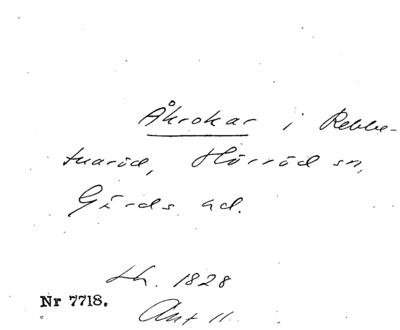 Åkrokar i Rebbe-
tuaröd, Hörröd sn,
Gärds hd.
Lh. 1828
Nr 7718.
Akt 11